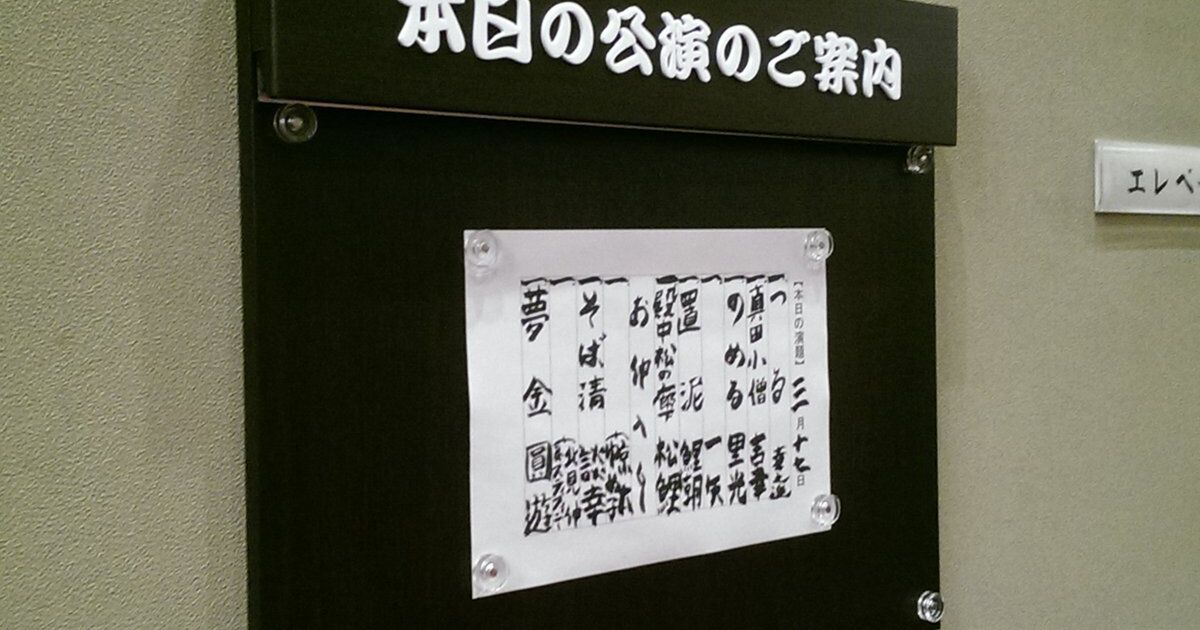 本日の公演のご案内
エレベ
【本日の演題】三月十七日
一つる
一真田小僧 吉幸
一のめる 里光
一 一矢
一置泥 鯉朝
一殿中松の廊 松鯉
お仲入り
一
一そば清 談幸
一 北見伸
一夢金 圓遊